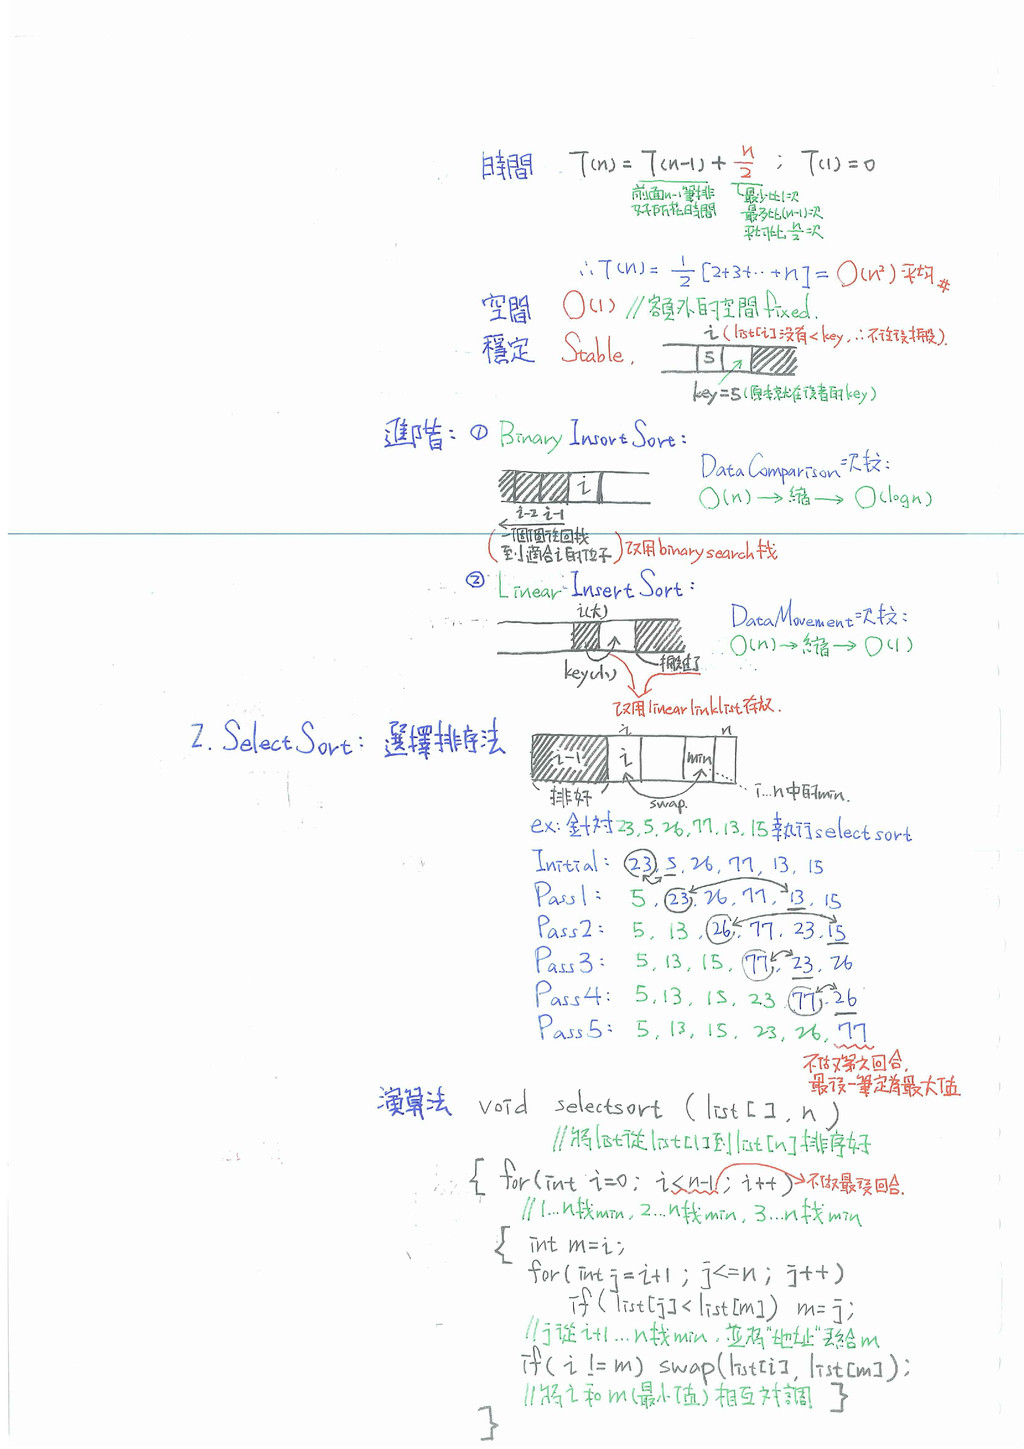 時間 T(n) = T(n-1) + n/2 ; T(1) = 0
前面n-1筆排
好所花時間
最少比1次
最多比(n-1)次
平均比n/2次
∴T(n) = 1/2 [2+3+…+n] = O(n²) 平均#
空間 O(1) //額外的空間fixed.
穩定 Stable.
i (list[i]沒有<key, ∴不往後挪)
5
key=5 (原本就在後者的key)
進階: ① Binary Insort Sort:
i
i-2 i-1
Data Comparison次數:
O(n) → 縮 → O(logn)
(一個個往回找
到適合i的位子) 改用binary search找
② Linear Insert Sort:
i(大)
key(小)
Data Movement次數:
O(n) → 縮 → O(1)
改用linear linklist存放.
2. Select Sort: 選擇排序法
i n
i-1 i min
排好 swap i…n中的min.
ex: 針對23, 5, 26, 77, 13, 15執行select sort
Initial: 23, 5, 26, 77, 13, 15
Pass1: 5, 23, 26, 77, 13, 15
Pass2: 5, 13, 26, 77, 23, 15
Pass3: 5, 13, 15, 77, 23, 26
Pass4: 5, 13, 15, 23, 77, 26
Pass5: 5, 13, 15, 23, 26, 77
不做第六回合,
最後一筆定為最大值
演算法 void selectsort (list[], n)
//將list從list[1]到list[n]排序好
{ for(int i=0; i<n-1; i++) 不做最後回合.
//1…n找min, 2…n找min, 3…n找min
{ int m=i;
for(int j=i+1; j<=n; j++)
if(list[j]<list[m]) m=j;
//j從i+1…n找min, 並將"地址"丟給m
if(i != m) swap(list[i], list[m]);
//將i和m(最小值)相互對調 }
}